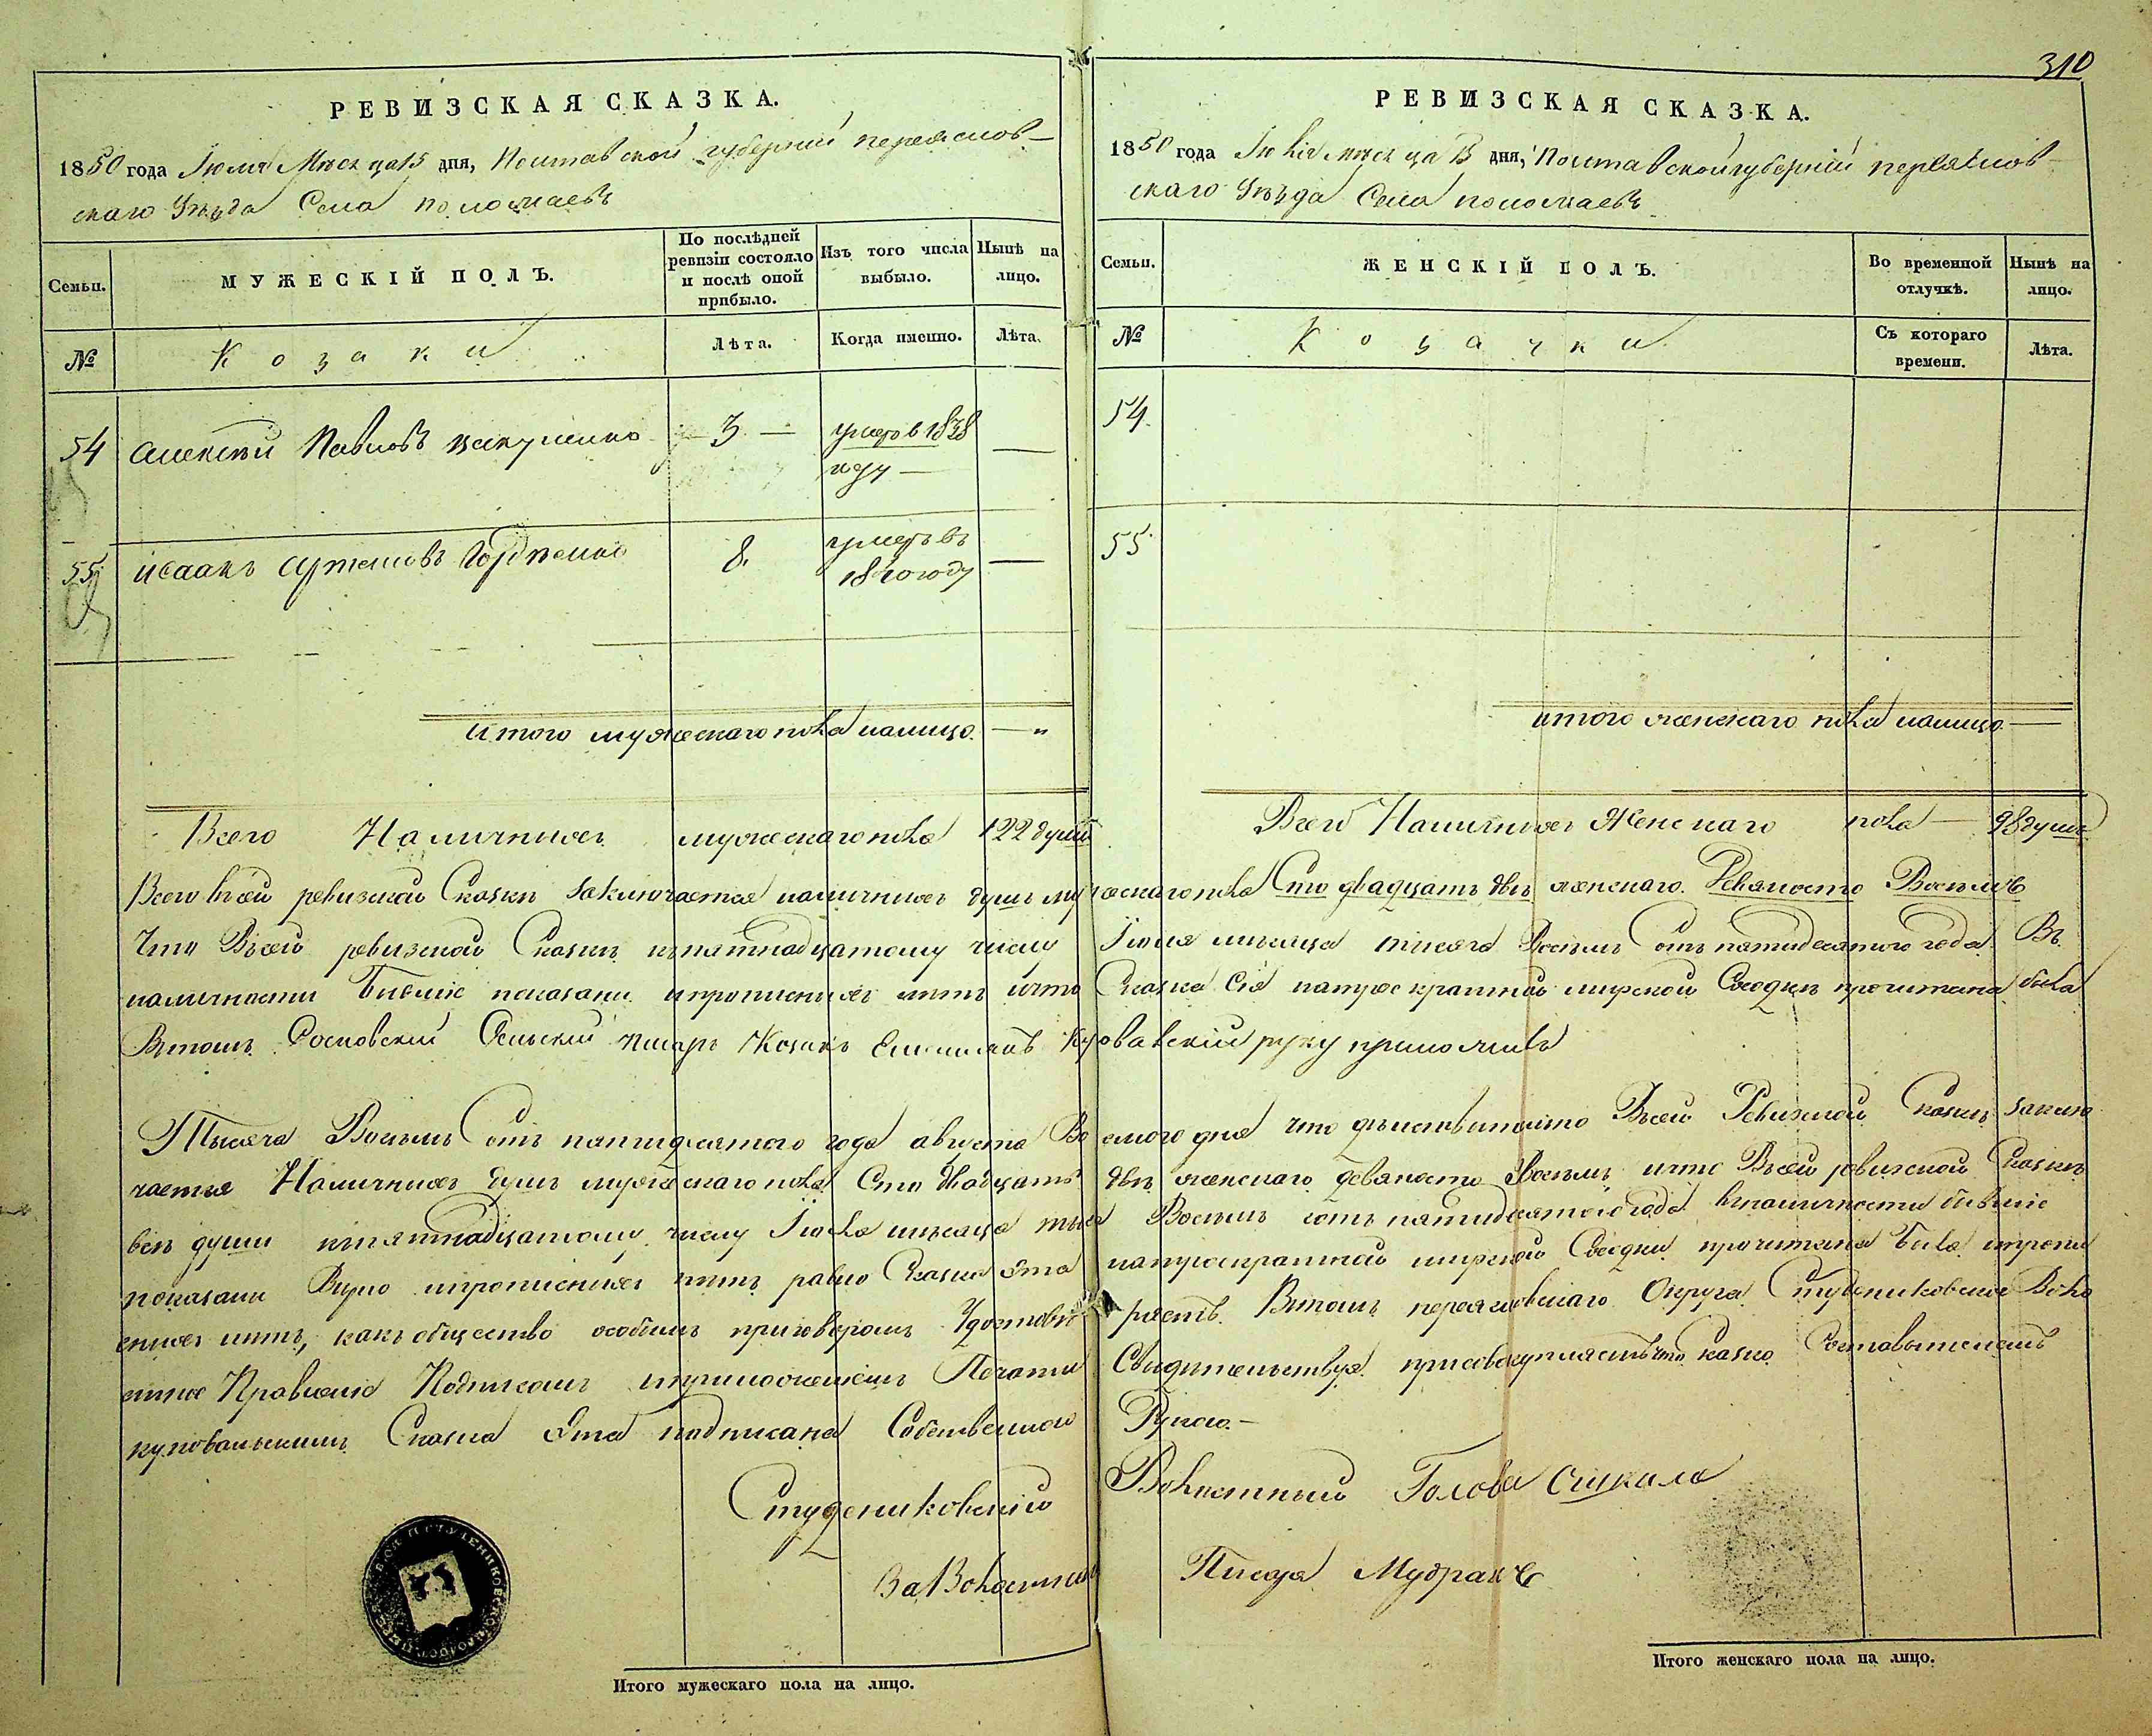 310
РЕВИЗСКАЯ СКАЗКА.
1850 года Іюля Мѣсяца 15 дня, Полтавской губерніи переяслов-
скаго Уѣзда Села поломаевъ
Семьи.
МУЖЕСКІЙ ПОЛЪ.
По послѣдней ревизіи состояло и послѣ оной прибыло.
Изъ того числа выбыло.
Нынѣ на лицо.
№
Козаки
Лѣта.
Когда именно.
Лѣта.
54 Алексѣй Павловъ 3 — умер в 1838 —
году —
55 Исаакъ Артемовъ Гордѣенко 8. умеръ въ —
1840 году
Итого мужескаго пола налицо — „
Всего Наличныхъ мужескаго пола 122 души
РЕВИЗСКАЯ СКАЗКА.
1850 года Іюля мѣсяца 15 дня, Полтавской губерніи переяслов-
скаго Уѣзда Села поломаевъ
Семьи.
ЖЕНСКІЙ ПОЛЪ.
Во временной отлучкѣ.
Нынѣ на лицо.
№
Козачки
Съ котораго времени.
Лѣта.
54.
55.
итого женскаго пола налицо —
Всего Наличныхъ Женскаго пола — 98 душъ
Всего въ сей ревизской Сказкѣ заключается наличныхъ душъ мужескаго пола Сто двадцать двѣ женскаго. Девяносто Восемь
Что Въ сей ревизской Сказкѣ къ пятнадцатому числу Іюля мѣсяца тисяча Восемь Сотъ пятидесятого года Въ
наличности Бывшіе показаны и прописныхъ нѣтъ и что Сказка Сія на троекратной мирской Сходкѣ прочитана была
Втомъ Сосновскій Сельскій писарь Козакъ руку приложилъ
Тысяча Восемь Сотъ пятидесятого года августа дня что дѣйствительно Въ сей Ревизской Сказкѣ заклю
чается Наличныхъ душъ мужескаго пола Сто двадцать двѣ женскаго девяносто Восемь и что Въ сей ревизской Сказкѣ
всѣ души къ пятнадцатому числу Іюля мѣсяца тыся Восемь сотъ пятидесятого года в наличности бывшіе
показаны и прописныхъ нѣтъ равно Сказка Эта на троекратной мирской Сходки прочитана Была и пропи
сныхъ нѣтъ, какъ общество особымъ приговоромъ Удостовѣ ряетъ. Втомъ переяславскаго Округа Студениковское Воло
стное Правленіе Подписомъ и приложеніемъ Печати Свидѣтельствуя присовокупляетъ что Сказка Составителемъ
Сказка Эта подписана Собственной Рукою.—
Студениковскій Волостный Голова
За Волостнаго Писаря Мудракъ
Итого мужескаго пола на лицо.
Итого женскаго пола на лицо.